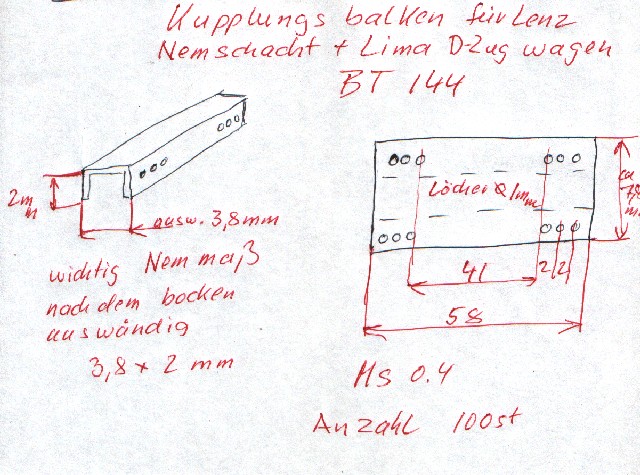 Kupplungs balken für Lenz
Nemschacht + Lima D-Zug wagen
BT 144
2mm
ausw. 3,8mm
wichtig Nem maß
nach dem bocken
auswändig
3,8 x 2 mm
Löcher Ø 1mm
ca
41
2 2
58
Ms 0.4
Anzahl 100st